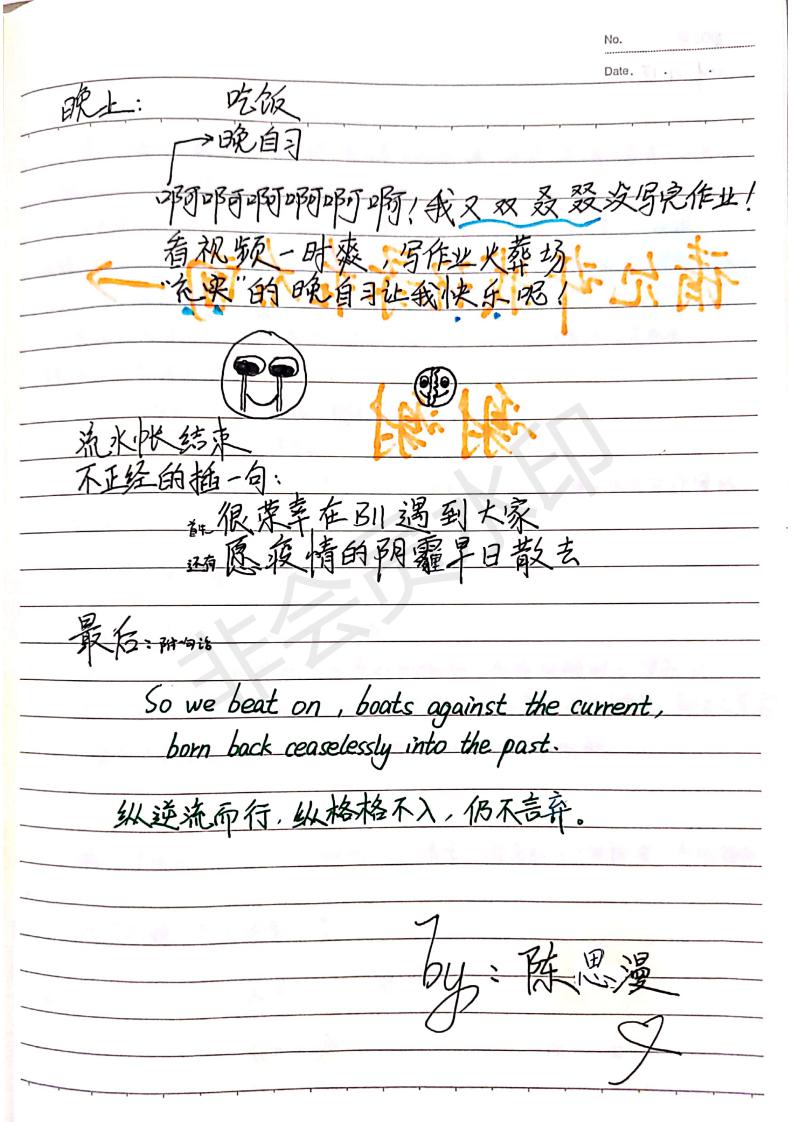 No.
Date.
晚上: 吃饭
晚自习
啊啊啊啊啊啊!我又双叒叕没写完作业!
看视频一时爽,写作业火葬场
“充实”的晚自习让我快乐呢!
流水帐结束
不正经的插一句:
首先 很荣幸在B11遇到大家
还有 愿疫情的阴霾早日散去
最后:附句话
So we beat on, boats against the current,
born back ceaselessly into the past.
纵逆流而行,纵格格不入,仍不言弃。
by:陈思漫
非会员水印